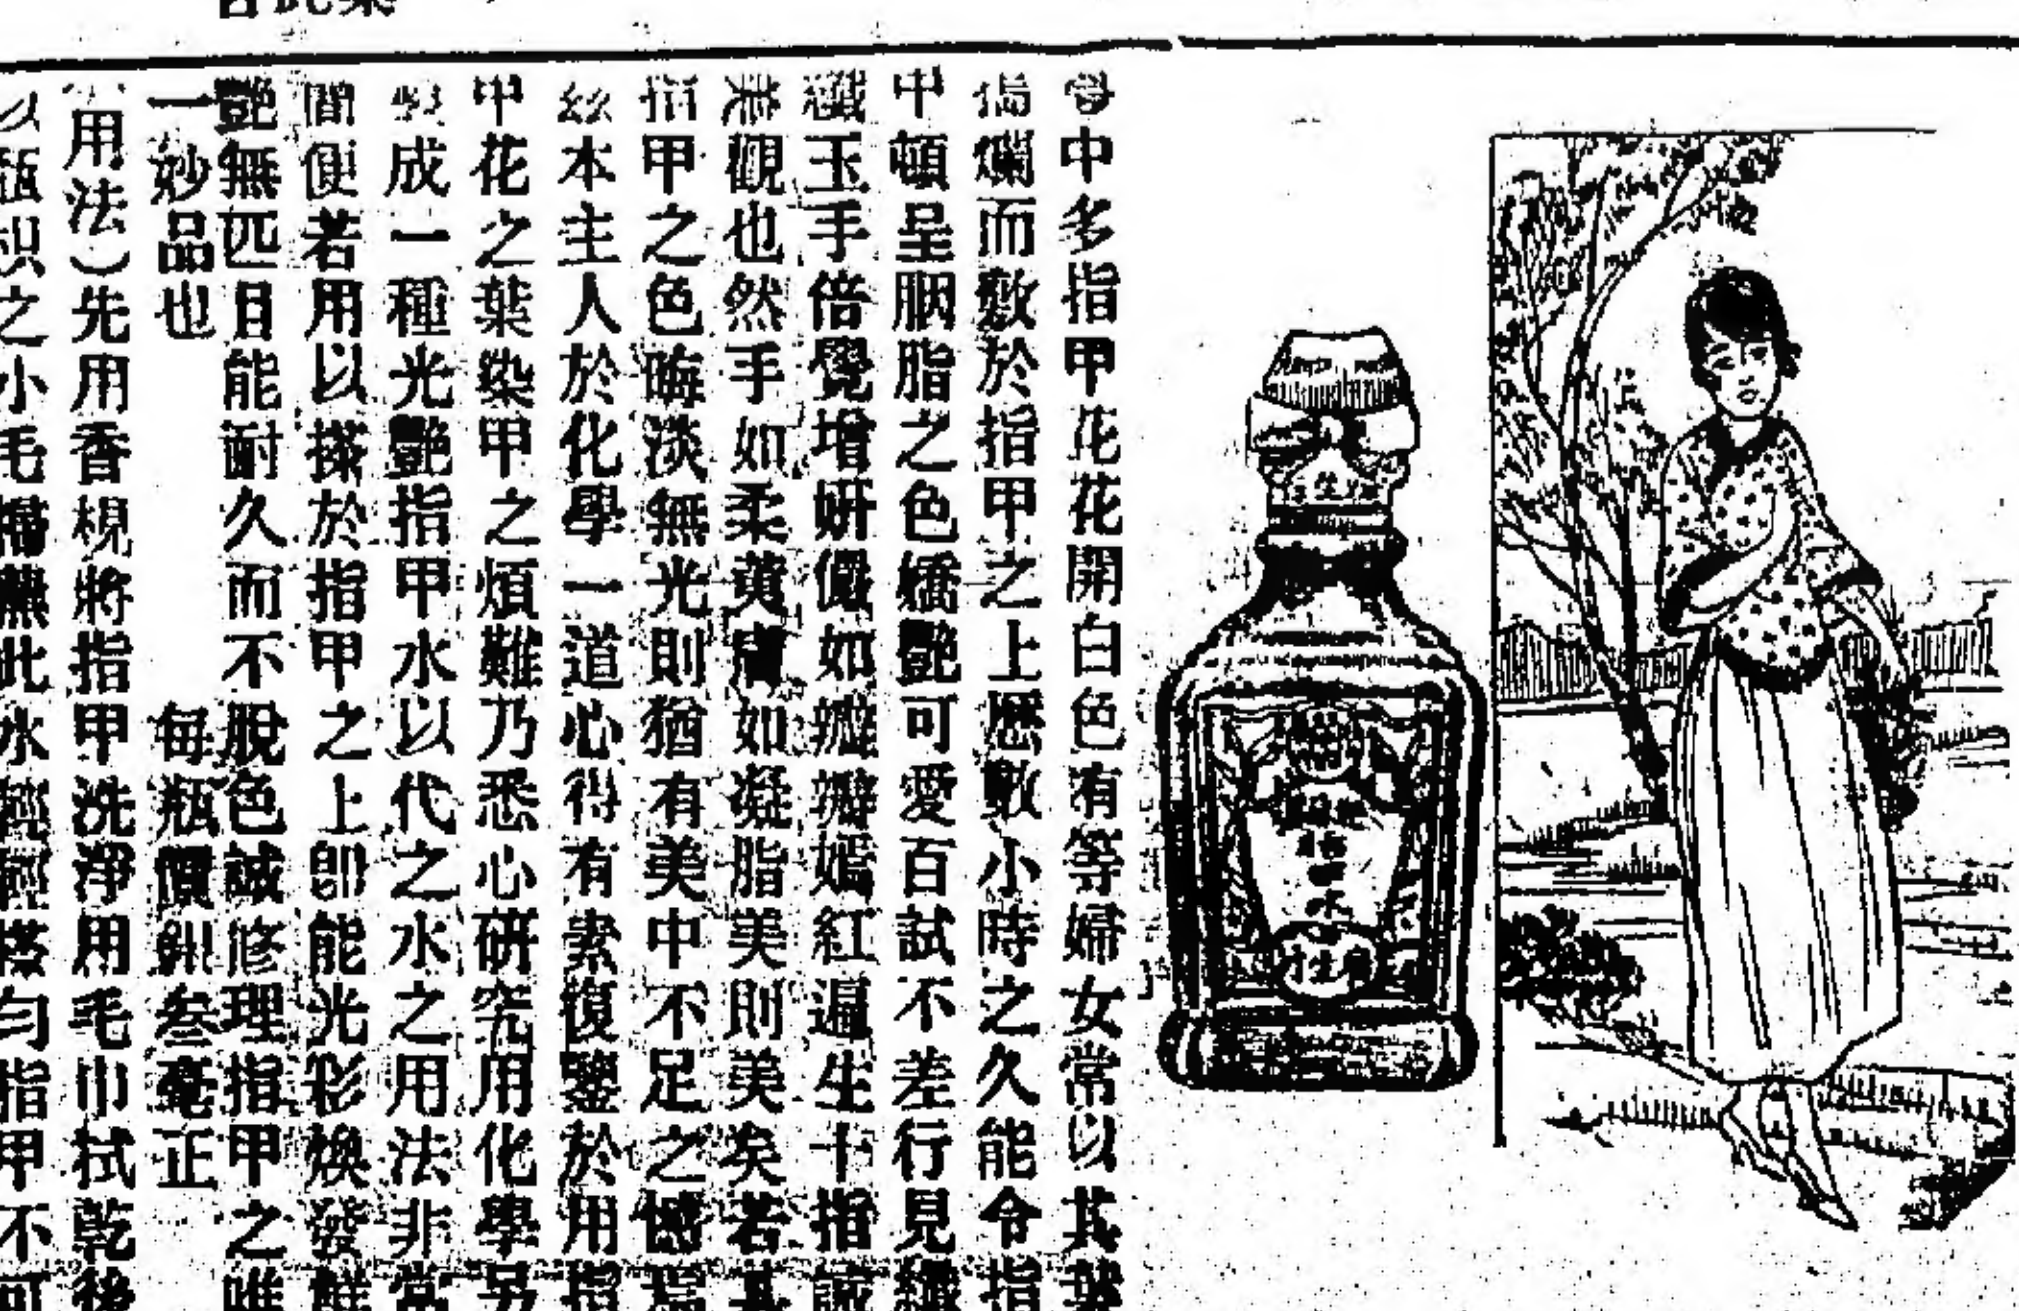 中多指甲花花開白色有等婦女常以其葉
搗爛而敷於指甲之上歷數小時之久能令指
甲頓呈胭脂之色嬌艷可愛百試不差行見纖
纖玉手倍覺增妍儼如瓣瓣嫣紅遍生十指誠
美觀也然手如柔荑膚如凝脂美則美矣若其
指甲之色晦淡無光則猶有美中不足之憾焉
茲本主人於化學一道心得有素復鑒於用指
甲花之葉染甲之煩難乃悉心研究用化學另
製成一種光艷指甲水以代之水之用法非常
簡便若用以搽於指甲之上卽能光彩煥發鮮
艷無匹且能耐久而不脫色誠修理指甲之唯
一妙品也 每瓶價銀叁毫正
用法）先用香梘將指甲洗淨用毛巾拭乾後
以瓶枳之小毛掃蘸此水輕輕搽勻指甲不可